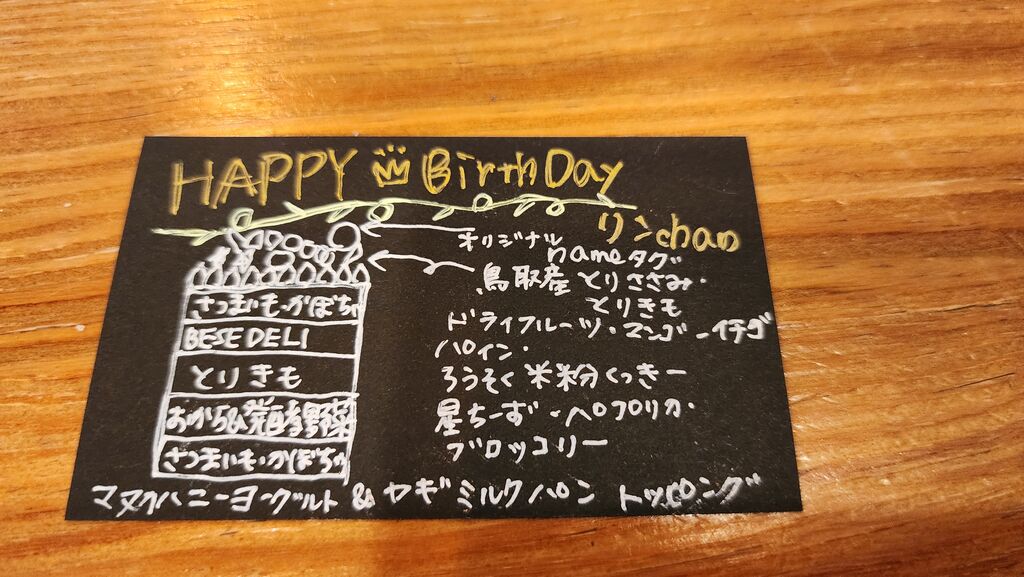 HAPPY BirthDay
リンchan
オリジナル
nameタグ
鳥取産 とりささみ・
とりきも
ドライフルーツ・マンゴー イチゴ
パイン・
ろうそく 米粉くっきー
星ちーず・パプリカ・
ブロッコリー
さつまいも・かぼちゃ
BESE DELI
とりきも
おから&発酵野菜
さつまいも・かぼちゃ
マヌカハニーヨーグルト & ヤギミルクパン トッピング